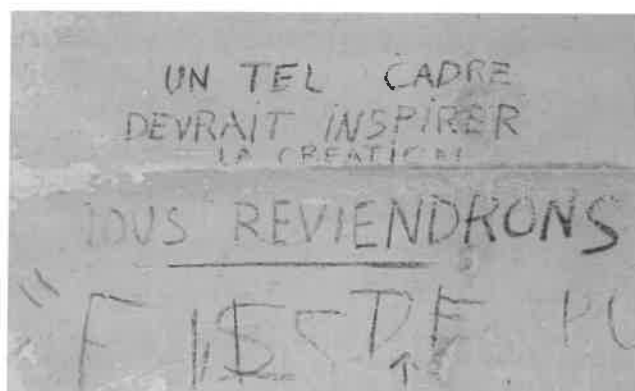 UN TEL CADRE
DEVRAIT INSPIRER
LA CREATION
NOUS REVIENDRONS